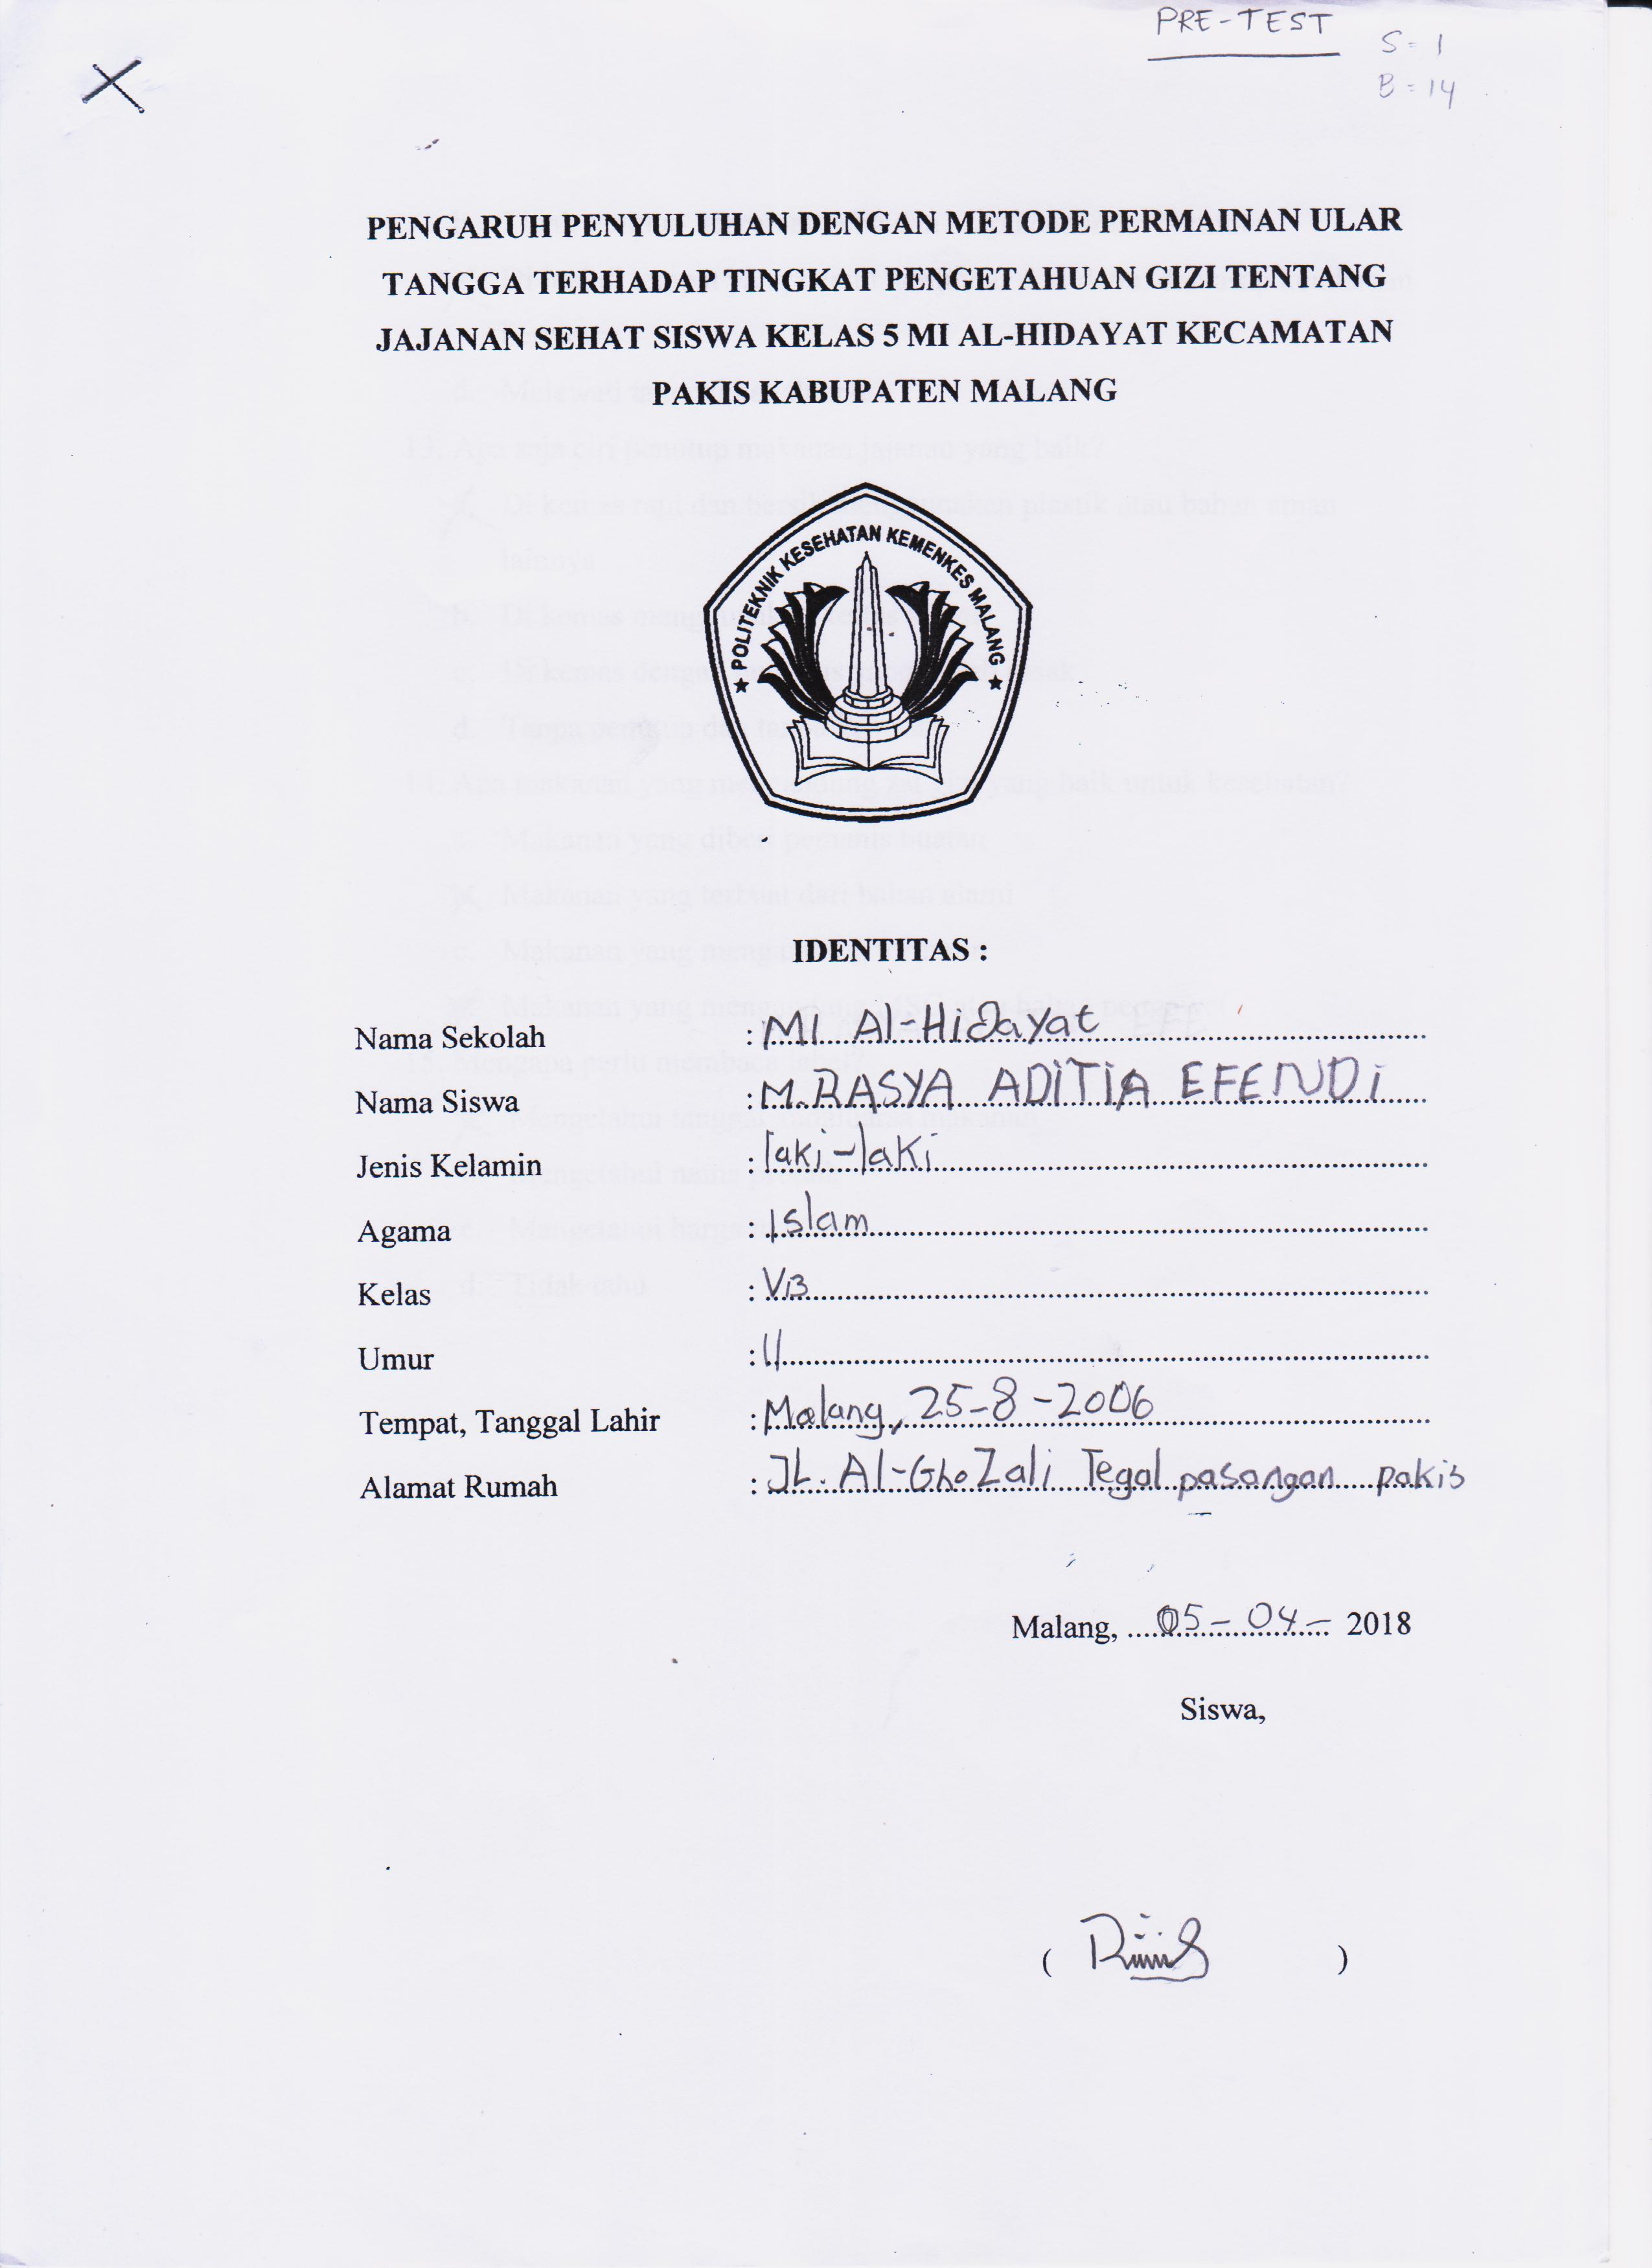 PRE-TEST
S = 1
B = 14
PENGARUH PENYULUHAN DENGAN METODE PERMAINAN ULAR
TANGGA TERHADAP TINGKAT PENGETAHUAN GIZI TENTANG
JAJANAN SEHAT SISWA KELAS 5 MI AL-HIDAYAT KECAMATAN
PAKIS KABUPATEN MALANG
POLITEKNIK KESEHATAN KEMENKES MALANG
IDENTITAS :
Nama Sekolah : MI Al-Hidayat
Nama Siswa : M. RASYA ADITIA EFENDI
Jenis Kelamin : laki-laki
Agama : Islam
Kelas : VB
Umur : 11
Tempat, Tanggal Lahir : Malang, 25-8-2006
Alamat Rumah : JL. Al-Ghozali Tegal pasangan pakis
Malang, 05-04- 2018
Siswa,
( )